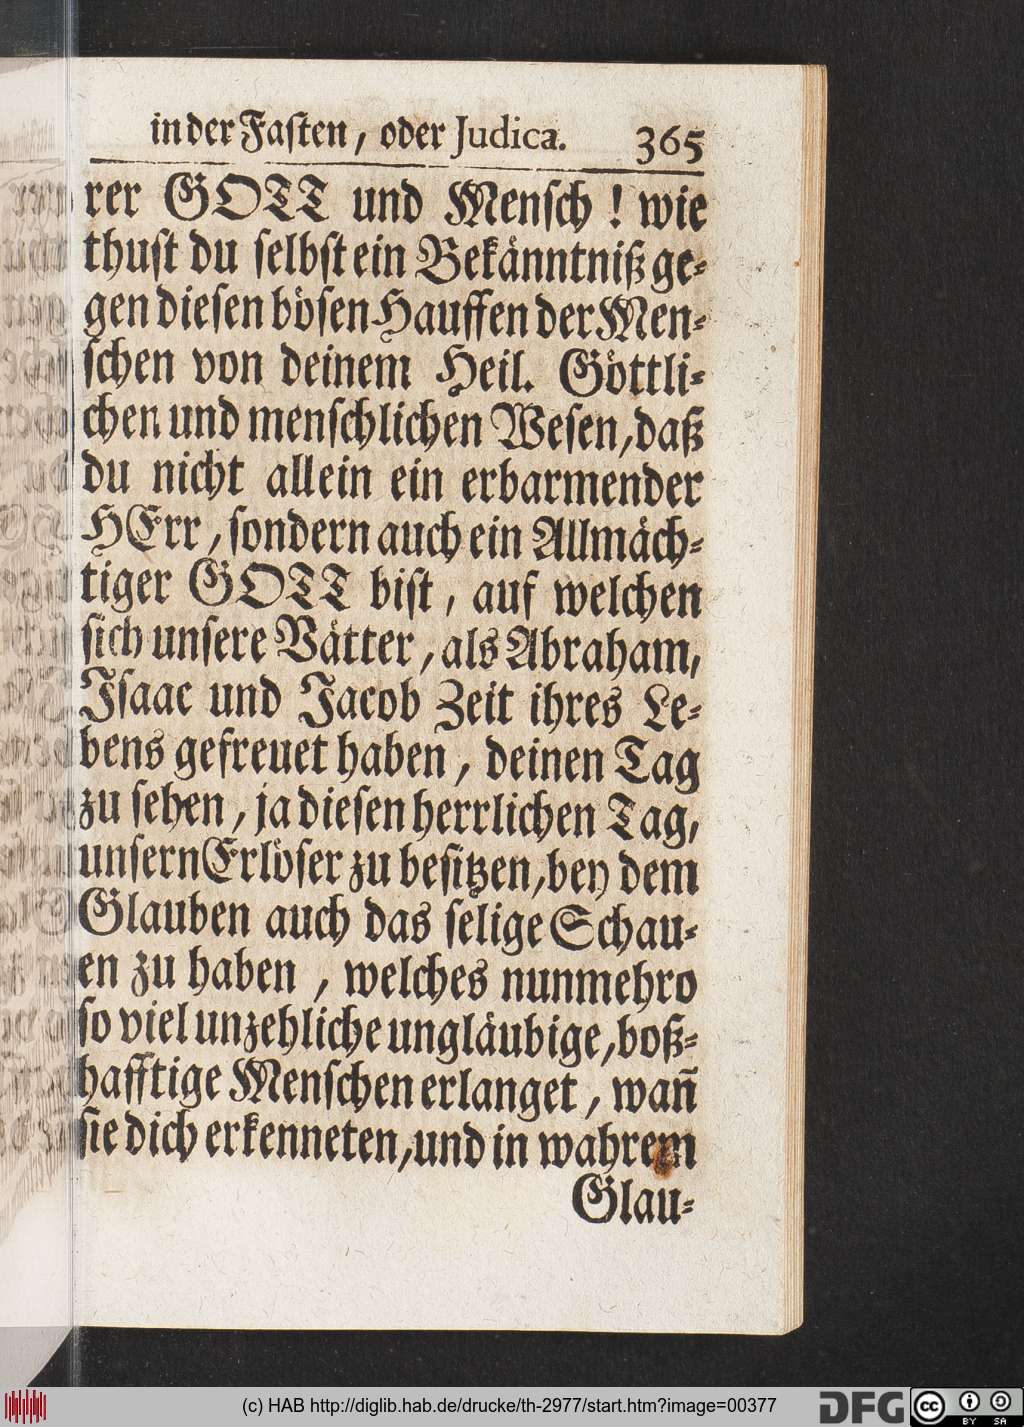 in der Faſten, oder Judica. 365
rer GOTT und Menſch! wie
thuſt du ſelbſt ein Bekänntniß ge-
gen dieſen böſen Hauffen der Men-
ſchen von deinem Heil. Göttli-
chen und menſchlichen Weſen, daß
du nicht allein ein erbarmender
HErr, ſondern auch ein Allmäch-
tiger GOTT biſt, auf welchen
ſich unſere Vätter, als Abraham,
Iſaac und Jacob Zeit ihres Le-
bens gefreuet haben, deinen Tag
zu ſehen, ja dieſen herrlichen Tag,
unſern Erlöſer zu beſitzen, bey dem
Glauben auch das ſelige Schau-
en zu haben, welches nunmehro
ſo viel unzehliche ungläubige, boß-
hafftige Menſchen erlanget, wañ
ſie dich erkenneten, und in wahrem
Glau-
(c) HAB http://diglib.hab.de/drucke/th-2977/start.htm?image=00377
DFG cc BY SA